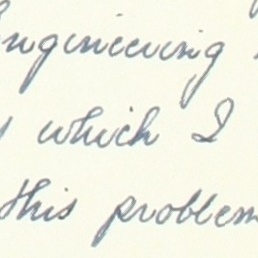 Engineering
which I
this problem